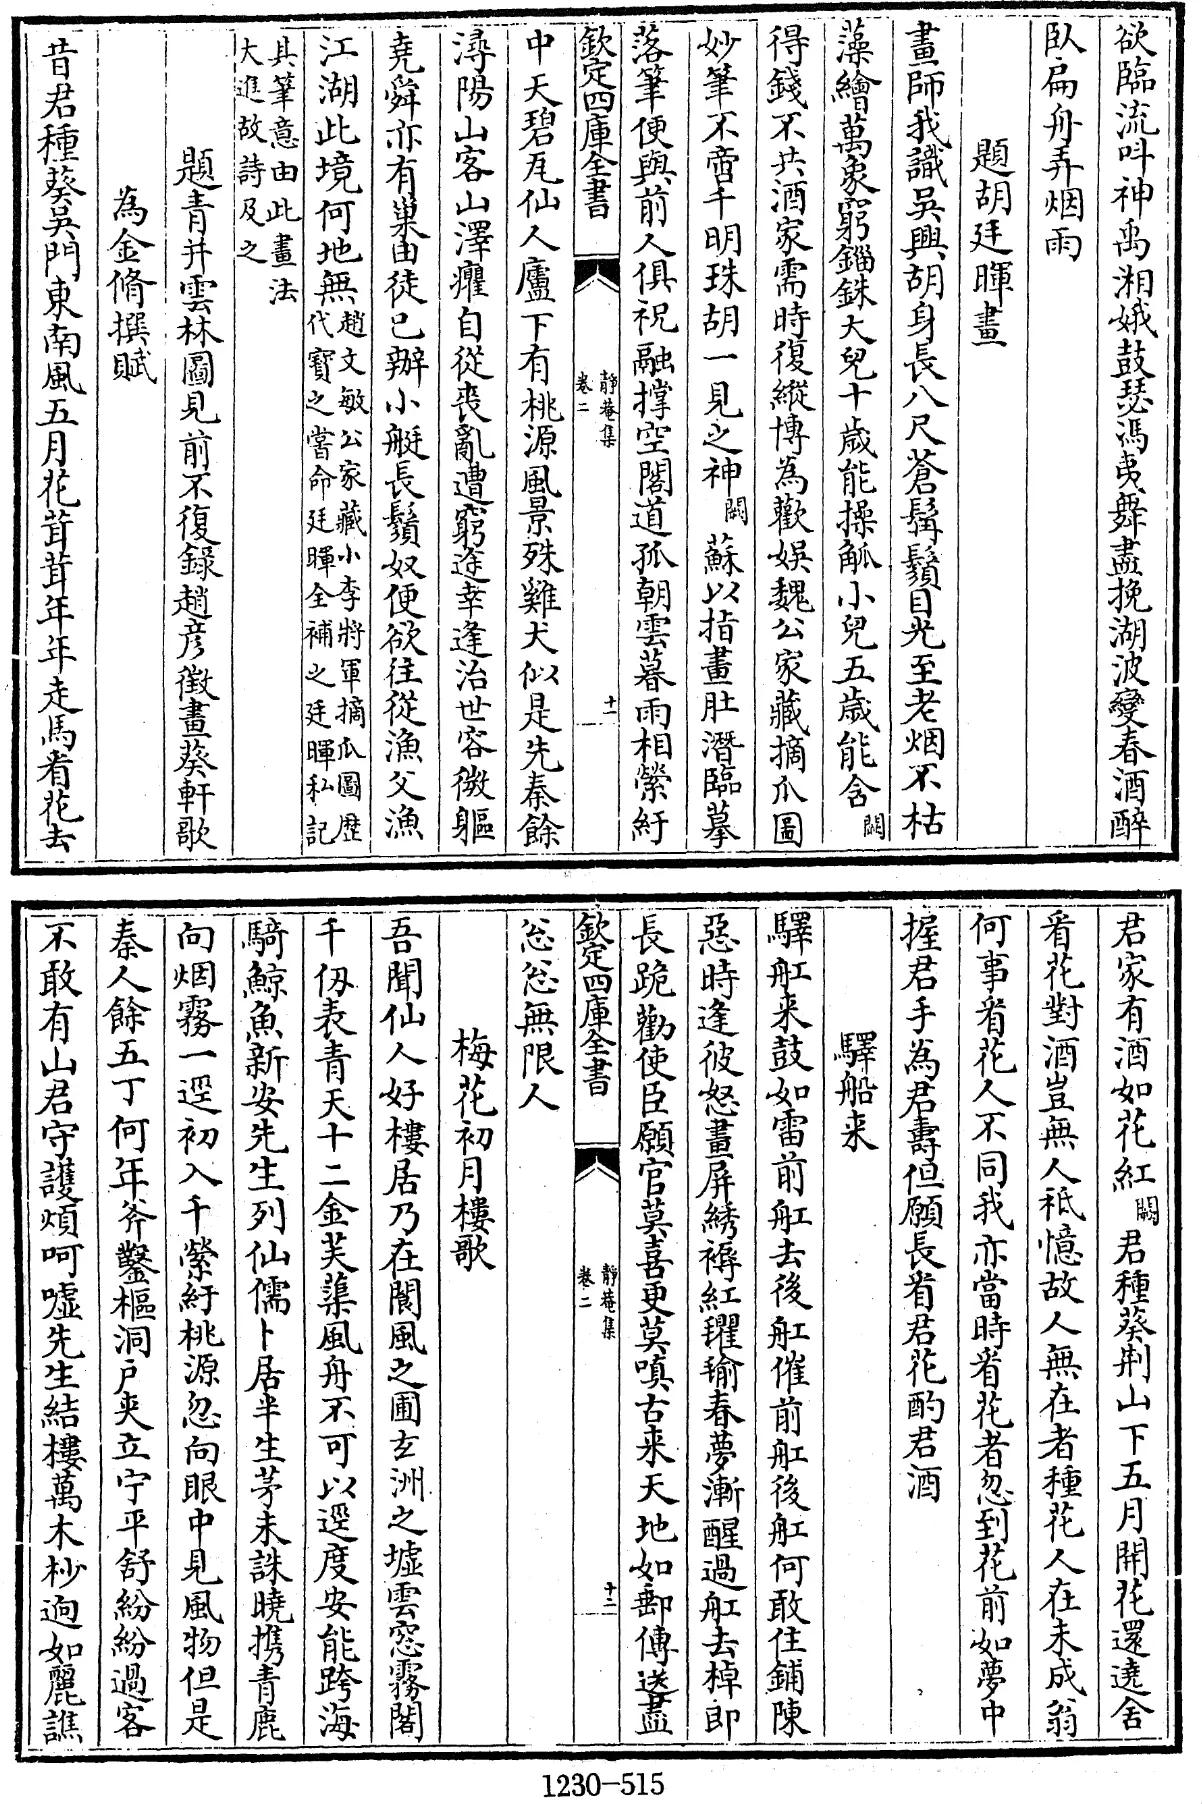 欲臨流叫神禹湘娥鼓瑟馮夷舞盡挽湖波變春酒醉
臥扁舟弄烟雨
題胡廷暉畫
畫師我識吳興胡身長八尺蒼髯鬚目光至老烟不枯
藻繪萬象窮錙銖大兒十歲能操觚小兒五歲能含闕
得錢不共酒家需時復縱博為歡娛魏公家藏摘瓜圖
妙筆不啻千明珠胡一見之神闕蘇以指畫肚潛臨摹
落筆便與前人俱祝融撑空閣道孤朝雲暮雨相縈紆
欽定四庫全書
靜菴集
卷二
十一
中天碧瓦仙人廬下有桃源風景殊雞犬似是先秦餘
潯陽山客山澤癯自從喪亂遭窮途幸逢治世容微軀
堯舜亦有巢由徒已辦小艇長鬚奴便欲往從漁父漁
江湖此境何地無趙文敏公家藏小李將軍摘瓜圖歷
代寶之嘗命廷暉全補之廷暉私記
其筆意由此畫法
大進故詩及之
題青弁雲林圖見前不復錄趙彥徵畫葵軒歌
為金脩撰賦
昔君種葵吳門東南風五月花茸茸年年走馬看花去
君家有酒如花紅闕君種葵荆山下五月開花還遶舍
看花對酒豈無人祗憶故人無在者種花人在未成翁
何事看花人不同我亦當時看花者忽到花前如夢中
握君手為君壽但願長看君花酌君酒
驛船来
驛舡来鼓如雷前舡去後舡催前舡後舡何敢住鋪陳
惡時逢彼怒畫屏綉褥紅氍毹春夢漸醒過舡去棹郎
長跪勸使臣願官莫喜更莫嗔古来天地如郵傳送盡
欽定四庫全書
靜菴集
卷二
十二
忩忩無限人
梅花初月樓歌
吾聞仙人好樓居乃在閬風之圃玄洲之墟雲窓霧閣
千仭表青天十二金芙蕖風舟不可以逕度安能跨海
騎鯨魚新安先生列仙儒卜居半生茅未誅曉携青鹿
向烟霧一逕初入千縈紆桃源忽向眼中見風物但是
秦人餘五丁何年斧鑿樞洞戶夾立宁平舒紛紛過客
不敢有山君守護煩呵噓先生結樓萬木杪逈如麗譙
1230-515